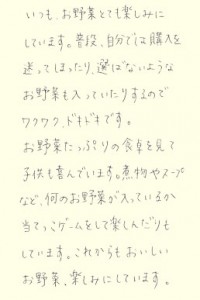 いつも、お野菜とても楽しみに
しています。普段、自分では購入を
迷ってしまったり、選ばないような
お野菜も入っていたりするので
ワクワク、ドキドキです。
お野菜たっぷりの食卓を見て
子供も喜んでいます。煮物やスープ
など、何のお野菜が入っているか
当てっこゲームをして楽しんだりも
しています。これからもおいしい
お野菜、楽しみにしています。